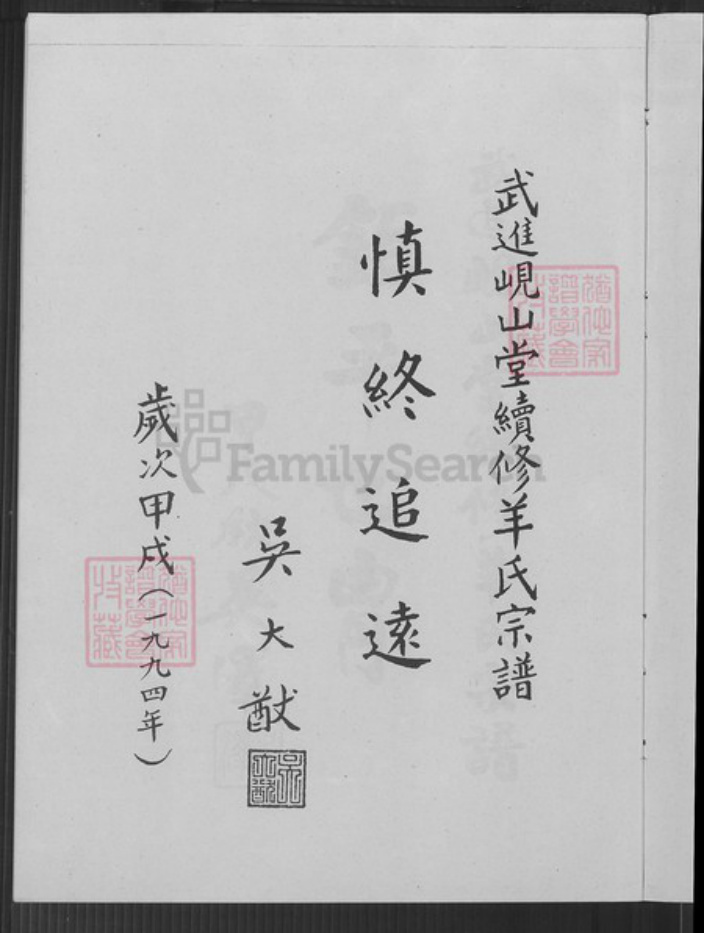 武進峴山堂續修羊氏宗譜
慎終追遠
吳大猷
歲次甲戌(一九九四年)
FamilySearch